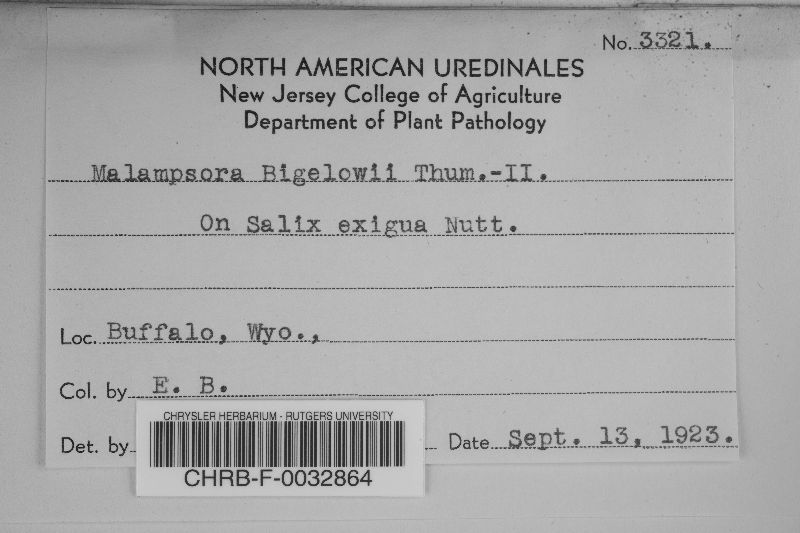 No. 3321.
NORTH AMERICAN UREDINALES
New Jersey College of Agriculture
Department of Plant Pathology
Malampsora Bigelowii Thum.-II.
On Salix exigua Nutt.
Loc. Buffalo, Wyo.,
Col. by E. B.
CHRYSLER HERBARIUM - RUTGERS UNIVERSITY
Det. by Date Sept. 13, 1923.
CHRB-F-0032864